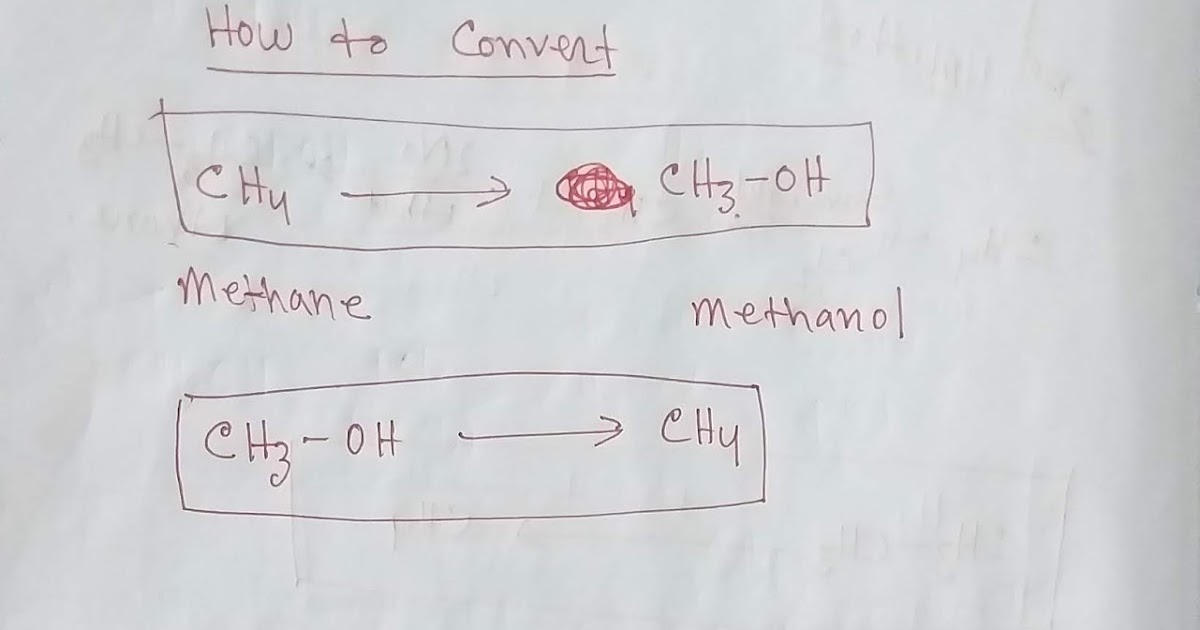 How to Convert
CH4 → CH3-OH
Methane methanol
CH3-OH → CH4